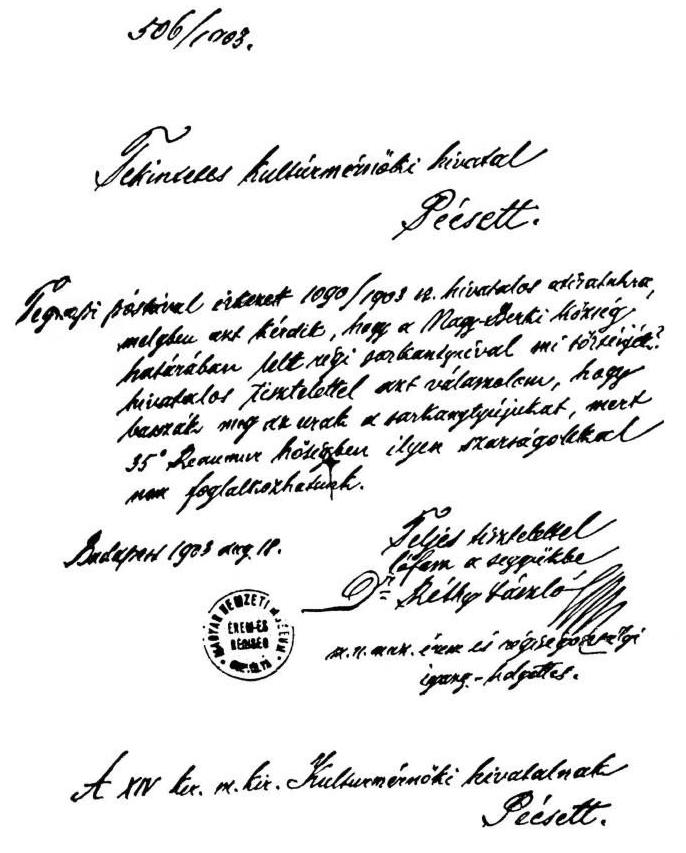 506/1903.
Tekintetes kultúrmérnöki hivatal
Pécsett.
Tegnapi póstával érkezett 1090/1903 sz. hivatalos átiratukra,
melyben azt kérdik, hogy a Nagy-Berki község
határában lelt régi sarkantyúval mi történjék?
hivatalos tisztelettel azt válaszolom, hogy
basszák meg az urak a sarkantyújukat, mert
35° Reaumur hőségben ilyen szarságokkal
nem foglalkozhatunk.
Budapest 1903 aug. 18.
Teljes tisztelettel
lófasz a seggükbe
Dr Réthy László
m. n. muz. érem és régiségosztályi
igazg.-helyettes.
MAGYAR NEMZETI MÚZEUM
ÉREM-ÉS
RÉGISÉG
A XIV ker. m. kir. Kulturmérnöki hivatalnak
Pécsett.